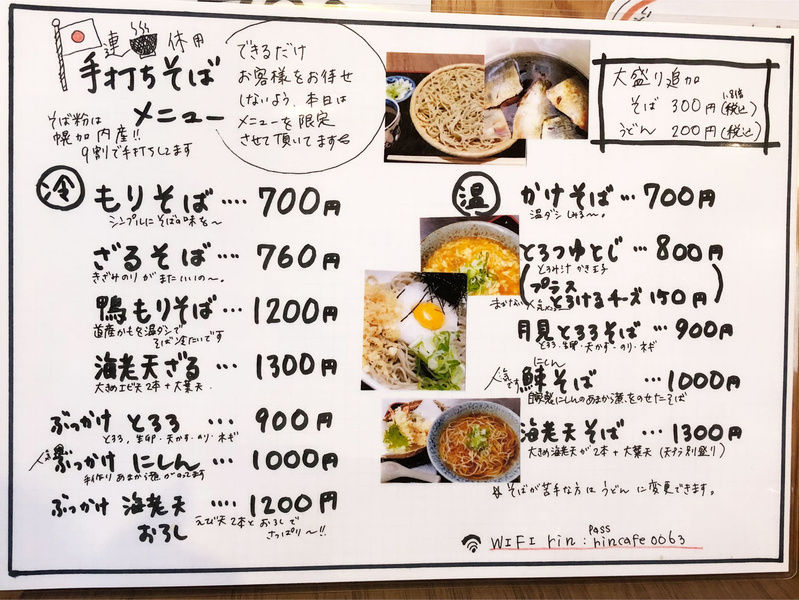 連休用
手打ちそば
メニュー
そば粉は
幌加内産!!
9割で手打ちしてます
できるだけ
お客様をお待せ
しないよう、本日は
メニューを限定
させて頂いてます
大盛り追加
1.8倍
そば 300円(税込)
うどん 200円(税込)
冷
もりそば‥‥ 700円
シンプルにそばの味を〜
ざるそば‥‥ 760円
きざみのりがまたいいの〜。
鴨もりそば‥‥ 1200円
道産かもを温ダシで
そば冷たいです
海老天ざる‥‥ 1300円
大きめエビ天2本+大葉天.
ぶっかけ とろろ ‥‥ 900円
とろろ・生卵・天かす・のり・ネギ
人気 ぶっかけ にしん ‥‥ 1000円
手作りあまから煮がのってます
ぶっかけ 海老天 ‥‥ 1200円
おろし
えび天2本とおろしで
さっぱり〜!!
温
かけそば … 700円
温ダシ
とろつゆとじ … 800円
とろみ汁 かき玉子
(プラス
とろけるチーズ 150円)
まかない人気メニュー
月見とろろそば … 900円
とろろ・生卵・天かす・のり・ネギ
にしん
人気です。 鰊そば …1000円
自家製にしんのあまから煮をのせたそば
海老天そば … 1300円
大きめ海老天が2本+大葉天 (天プラ別盛り)
※そばが苦手な方は うどん に変更できます。
PASS
WIFI rin : rincafe0063